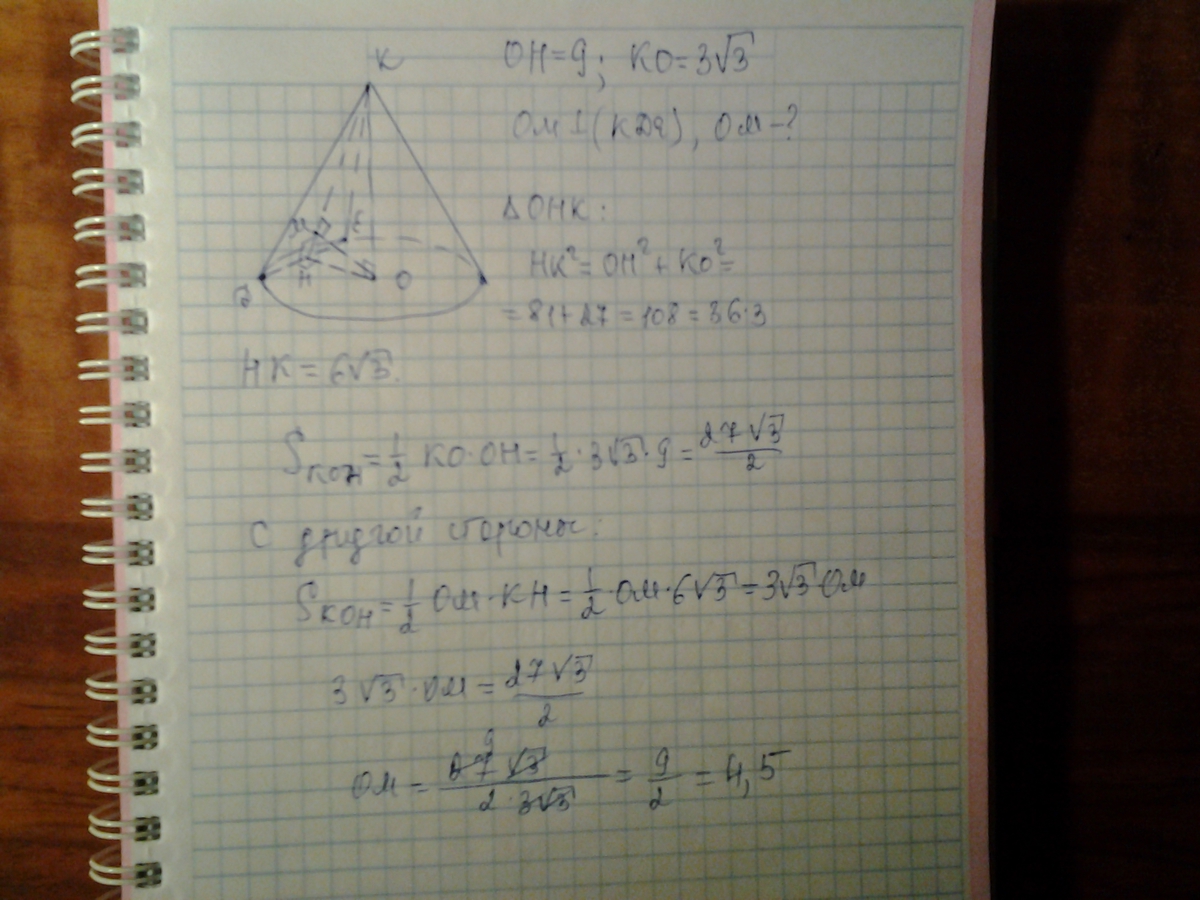 K
OH=9; KO=3√3
OM⊥(KDE), OM-?
M
E
D
H
O
ΔOHK:
HK²=OH²+KO²=
=81+27=108=36·3
HK=6√3.
S_KOH=1/2 KO·OH=1/2·3√3·9=27√3/2
С другой стороны:
S_KOH=1/2 OM·KH=1/2·OM·6√3=3√3 OM
3√3·OM=27√3/2
9
OM=27√3/(2·3√3)=9/2=4,5